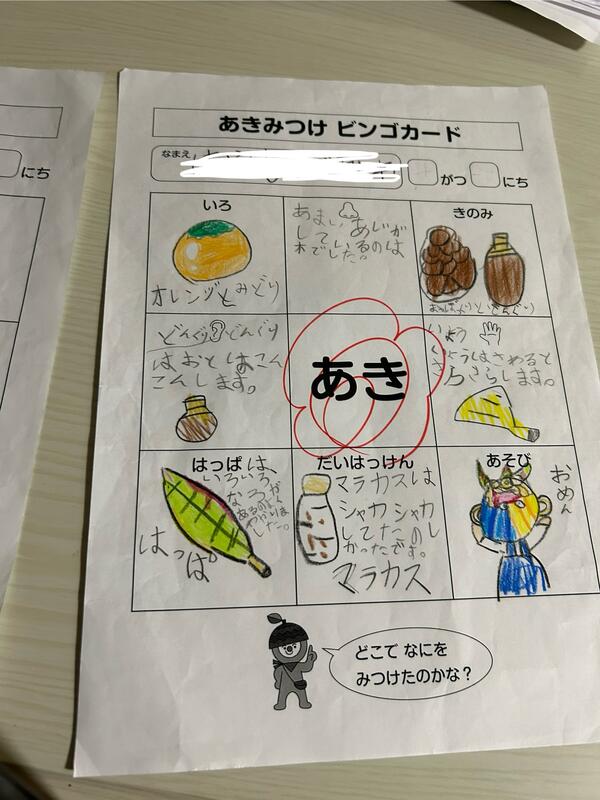 にち
あきみつけ ビンゴカード
なまえ
がつ
にち
いろ
オレンジとみどり
あまい
あじが
して
いるのは
木でした。
きのみ
どんぐり
どんぐり
はおとはこん
こんします。
あき
いちょう
いちょうはさわると
さらさらします。
はっぱは、
いろいろ
な
あるのがよく
わかりま
した。
はっぱ
だいはっけん
マラカスは
シャカシャカ
してたのし
かったです。
マラカス
あそび
おめん
どこで なにを
みつけたのかな？